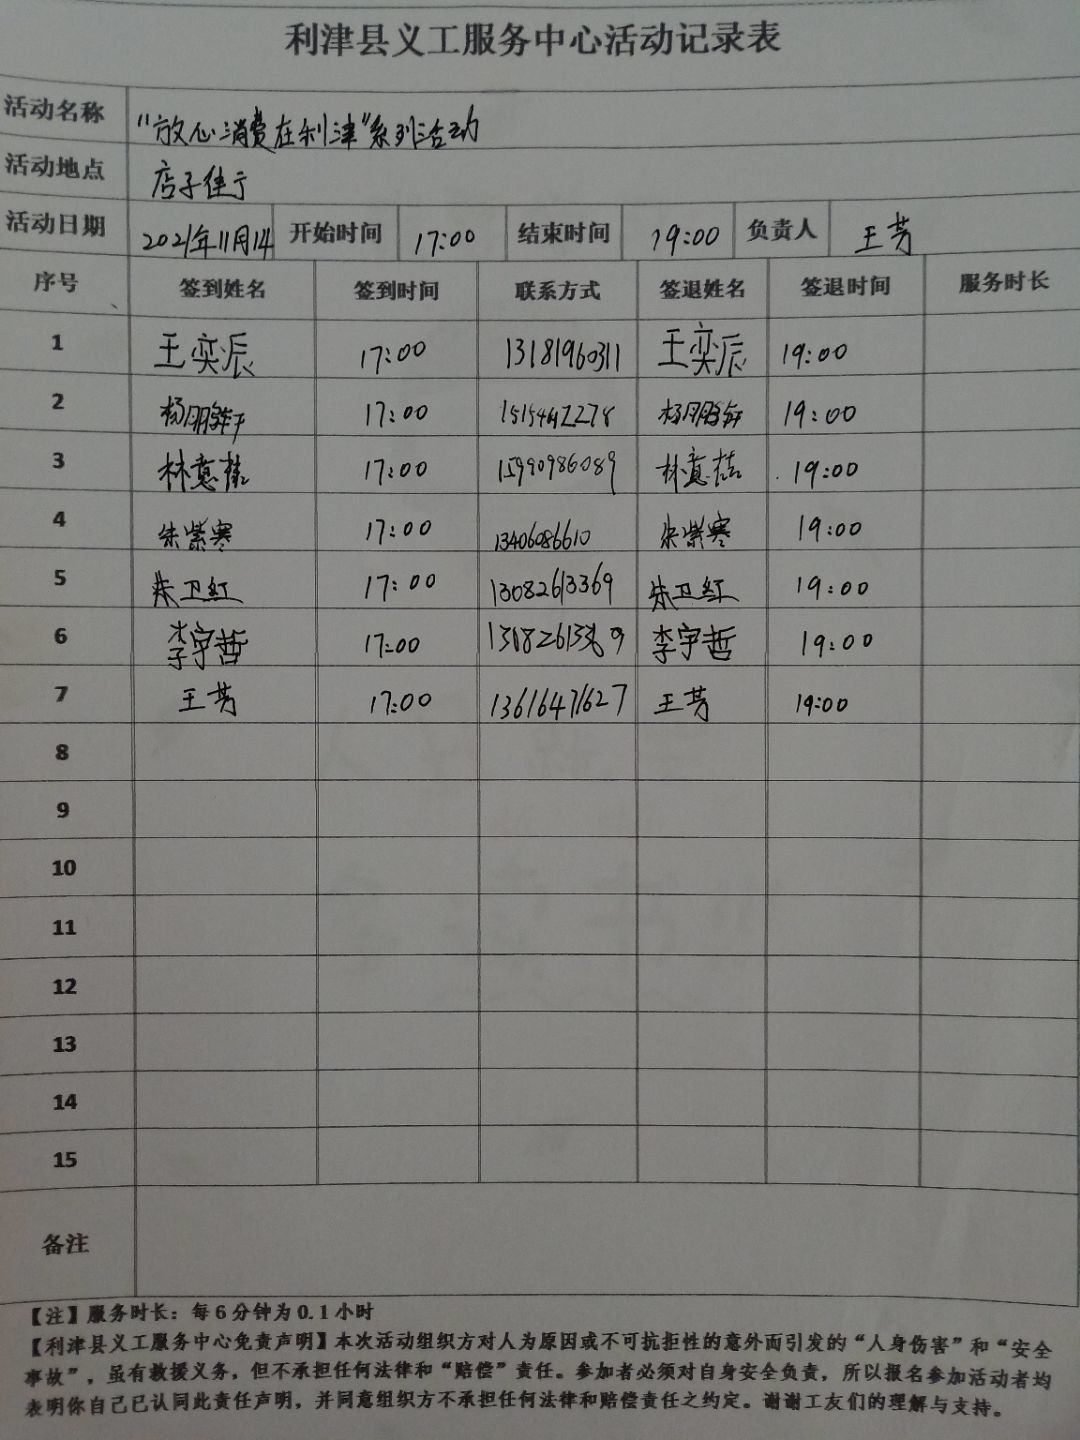 利津县义工服务中心活动记录表
活动名称 "放心消费在利津"系列活动
活动地点 店子佳宁
活动日期 2021年11月14 开始时间 17:00 结束时间 19:00 负责人 王芳
序号 签到姓名 签到时间 联系方式 签退姓名 签退时间 服务时长
1 王奕辰 17:00 13181960311 王奕辰 19:00
2 17:00 19:00
3 林意桔 17:00 15990986089 林意桔 19:00
4 朱紫寒 17:00 13406086610 朱紫寒 19:00
5 朱卫红 17:00 13082613369 朱卫红 19:00
6 李宇哲 17:00 李宇哲 19:00
7 王芳 17:00 13616471627 王芳 19:00
8
9
10
11
12
13
14
15
备注
【注】服务时长：每6分钟为0.1小时
【利津县义工服务中心免责声明】本次活动组织方对人为原因或不可抗拒性的意外而引发的“人身伤害”和“安全
事故”，虽有救援义务，但不承担任何法律和“赔偿”责任。参加者必须对自身安全负责，所以报名参加活动者均
表明你自己已认同此责任声明，并同意组织方不承担任何法律和赔偿责任之约定。谢谢工友们的理解与支持。